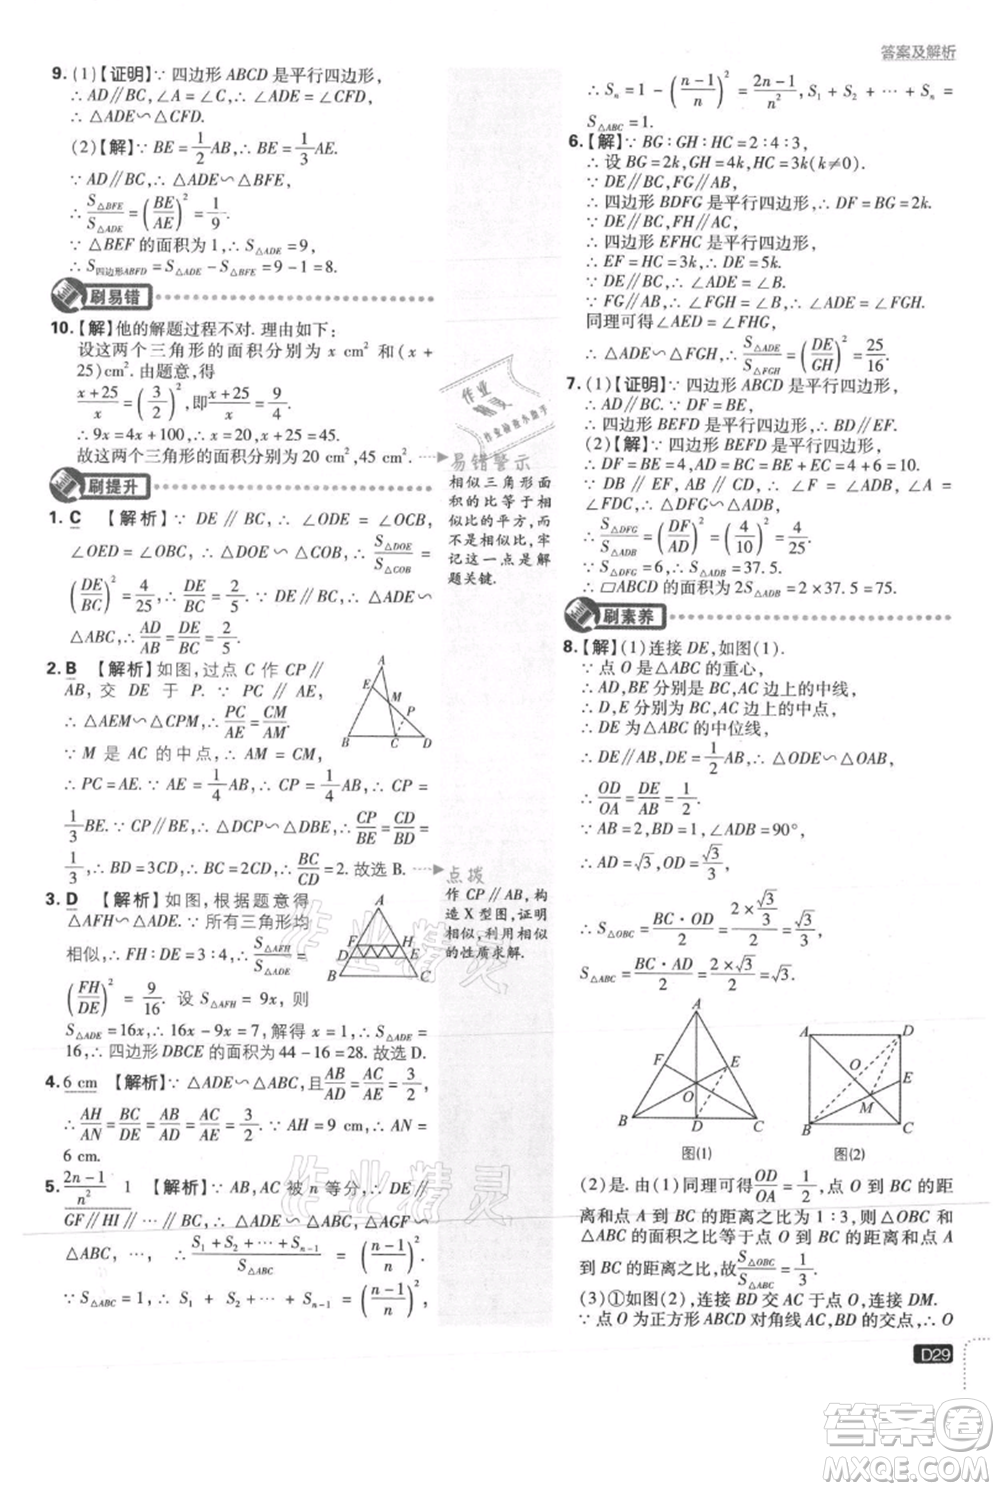 答案及解析
9. (1)【证明】∵ 四边形 ABCD 是平行四边形,
∴ AD∥BC,∠A = ∠C,∴ ∠ADE = ∠CFD,
∴ △ADE∽△CFD.
(2)【解】∵ BE = 1/2 AB,∴ BE/AE = 1/3.
∵ AD∥BC,∴ △ADE∽△BFE,
∴ S△BFE/S△ADE = (BE/AE)² = 1/9.
∵ △BEF 的面积为 1,∴ S△ADE = 9,
∴ S四边形ABFD = S△ADE − S△BFE = 9 − 1 = 8.
刷易错
10.【解】他的解题过程不对. 理由如下:
设这两个三角形的面积分别为 x cm² 和(x +
25)cm². 由题意,得
(x+25)/x = (3/2)²,即(x+25)/x = 9/4,
∴ 9x = 4x + 100,∴ x = 20,∴ x + 25 = 45.
故这两个三角形的面积分别为 20 cm²,45 cm².
易错警示
相似三角形面
积的比等于相
似比的平方,而
不是相似比,牢
记这一点是解
题关键.
刷提升
1. C 【解析】∵ DE∥BC,∴ ∠ODE = ∠OCB,
∠OED = ∠OBC,∴ △ODE∽△COB,∴ S△DOE/S△COB =
(DE/BC)² = 4/25,∴ DE/BC = 2/5. ∵ DE∥BC,∴ △ADE∽
△ABC,∴ AD/AB = DE/BC = 2/5.
2. B 【解析】如图,过点 C 作 CP∥
AB,交 DE 于 P. ∵ CP∥AE,
∴ △AEM∽△CPM,∴ PC/AE = CM/AM.
∵ M 是 AC 的中点,∴ AM = CM,
∴ PC = AE. ∵ AE = 1/4 AB,∴ CP = 1/4 AB,∴ CP =
1/3 BE. ∵ CP∥BE,∴ △DCP∽△DBE,∴ CP/BE = CD/BD =
1/3,∴ BD = 3CD,∴ BC = 2CD,∴ BC/CD = 2. 故选 B.
A
E
M
P
B
C
D
点拨
作 CP∥AB,构
造 X 型图,证明
相似,利用相似
的性质求解.
3. D 【解析】如图,根据题意得
△AFH∽△ADE. ∵ 所有三角形均
相似,∴ FH∶DE = 3∶4,∴ S△AFH/S△ADE =
(FH/DE)² = 9/16. 设 S△AFH = 9x,则
S△ADE = 16x,∴ 16x − 9x = 7,解得 x = 1,∴ S△ADE =
16,∴ 四边形 DBCE 的面积 = 44 − 16 = 28. 故选 D.
A
F
H
D
E
B
C
4. 6 cm 【解析】∵ △ADE∽△ABC,且AB/AD = AC/AE = 3/2,
∴ AH/AN = BC/DE = AB/AD = 3/2. ∵ AH = 9 cm,∴ AN =
6 cm.
5. (2n−1)/n² 1 【解析】∵ AB,AC 被 n 等分,∴ DE∥
GF∥HI∥⋯∥BC,∴ △ADE∽△ABC,△AGF∽
△ABC, ⋯, ∴ (S₁+S₂+⋯+Sₙ₋₁)/S△ABC = ((n−1)/n)².
∵ S△ABC = 1,∴ S₁ + S₂ + ⋯ + Sₙ₋₁ = ((n−1)/n)²,
∴ Sₙ = 1 − ((n−1)/n)² = (2n−1)/n²,S₁ + S₂ + ⋯ + Sₙ =
S△ABC = 1.
6.【解】∵ BG∶GH∶HC = 2∶4∶3,
∴ 设 BG = 2k,GH = 4k,HC = 3k(k≠0).
∵ DE∥BC,FG∥AB,
∴ 四边形 BDFG 是平行四边形,∴ DF = BG = 2k.
∵ DE∥BC,FH∥AC,
∴ 四边形 EFHC 是平行四边形,
∴ EF = HC = 3k,∴ DE = 5k.
∵ FG∥AB,∴ ∠ADE = ∠B,∴ ∠ADE = ∠FGH.
同理可得 ∠AED = ∠FHG,
∴ △ADE∽△FGH,∴ S△ADE/S△FGH = (DE/GH)² = 25/16.
7. (1)【证明】∵ 四边形 ABCD 是平行四边形,
∴ AD∥BC. ∵ DF = BE,
∴ 四边形 BEFD 是平行四边形,∴ BD∥EF.
(2)【解】∵ 四边形 BEFD 是平行四边形,
∴ DF = BE = 4. ∵ DF∥EC,∴ ∠DFG = ∠A,∠ADB =
∠FDC,∴ △DFG∽△DAB,
∴ S△DFG/S△ADB = (DF/AD)² = (4/10)² = 4/25.
∵ S△DFG = 6,∴ S△ADB = 37.5,
∴ ▱ABCD 的面积 = 2S△ADB = 2×37.5 = 75.
刷素养
8.【解】(1)连接 DE,如图(1).
∵ 点 O 是△ABC 的重心,
∴ AD,BE 分别是 BC,AC 边上的中线,
∴ D,E 分别为 BC,AC 边上的中点,
∴ DE 为△ABC 的中位线,
∴ DE∥AB,DE = 1/2 AB,∴ △ODE∽△OAB,
∴ OD/OA = DE/AB = 1/2.
∵ AB = 2,BD = 1,∠ADB = 90°,
∴ AD = √3,OD = √3/3,
∴ S△OBC = BC·OD/2 = (2×√3/3)/2 = √3/3,
S△ABC = BC·AD/2 = (2×√3)/2 = √3.
A
F
E
O
B
D
C
图(1)
A
D
O
E
M
B
C
图(2)
(2)是. 由(1)同理可得OD/OA = 1/2,点 O 到 BC 的距
离和点 A 到 BC 的距离之比为 1∶3,则△OBC 和
△ABC 的面积之比等于点 O 到 BC 的距离和点 A
到 BC 的距离之比,故S△OBC/S△ABC = 1/3.
(3)①如图(2),连接 BD 交 AC 于点 O,连接 DM.
∵ 点 O 为正方形 ABCD 对角线 AC,BD 的交点,∴ O
D29
作业精灵
作业精灵
作业
精灵
作业检查小助手
答案圈
MXQE.COM